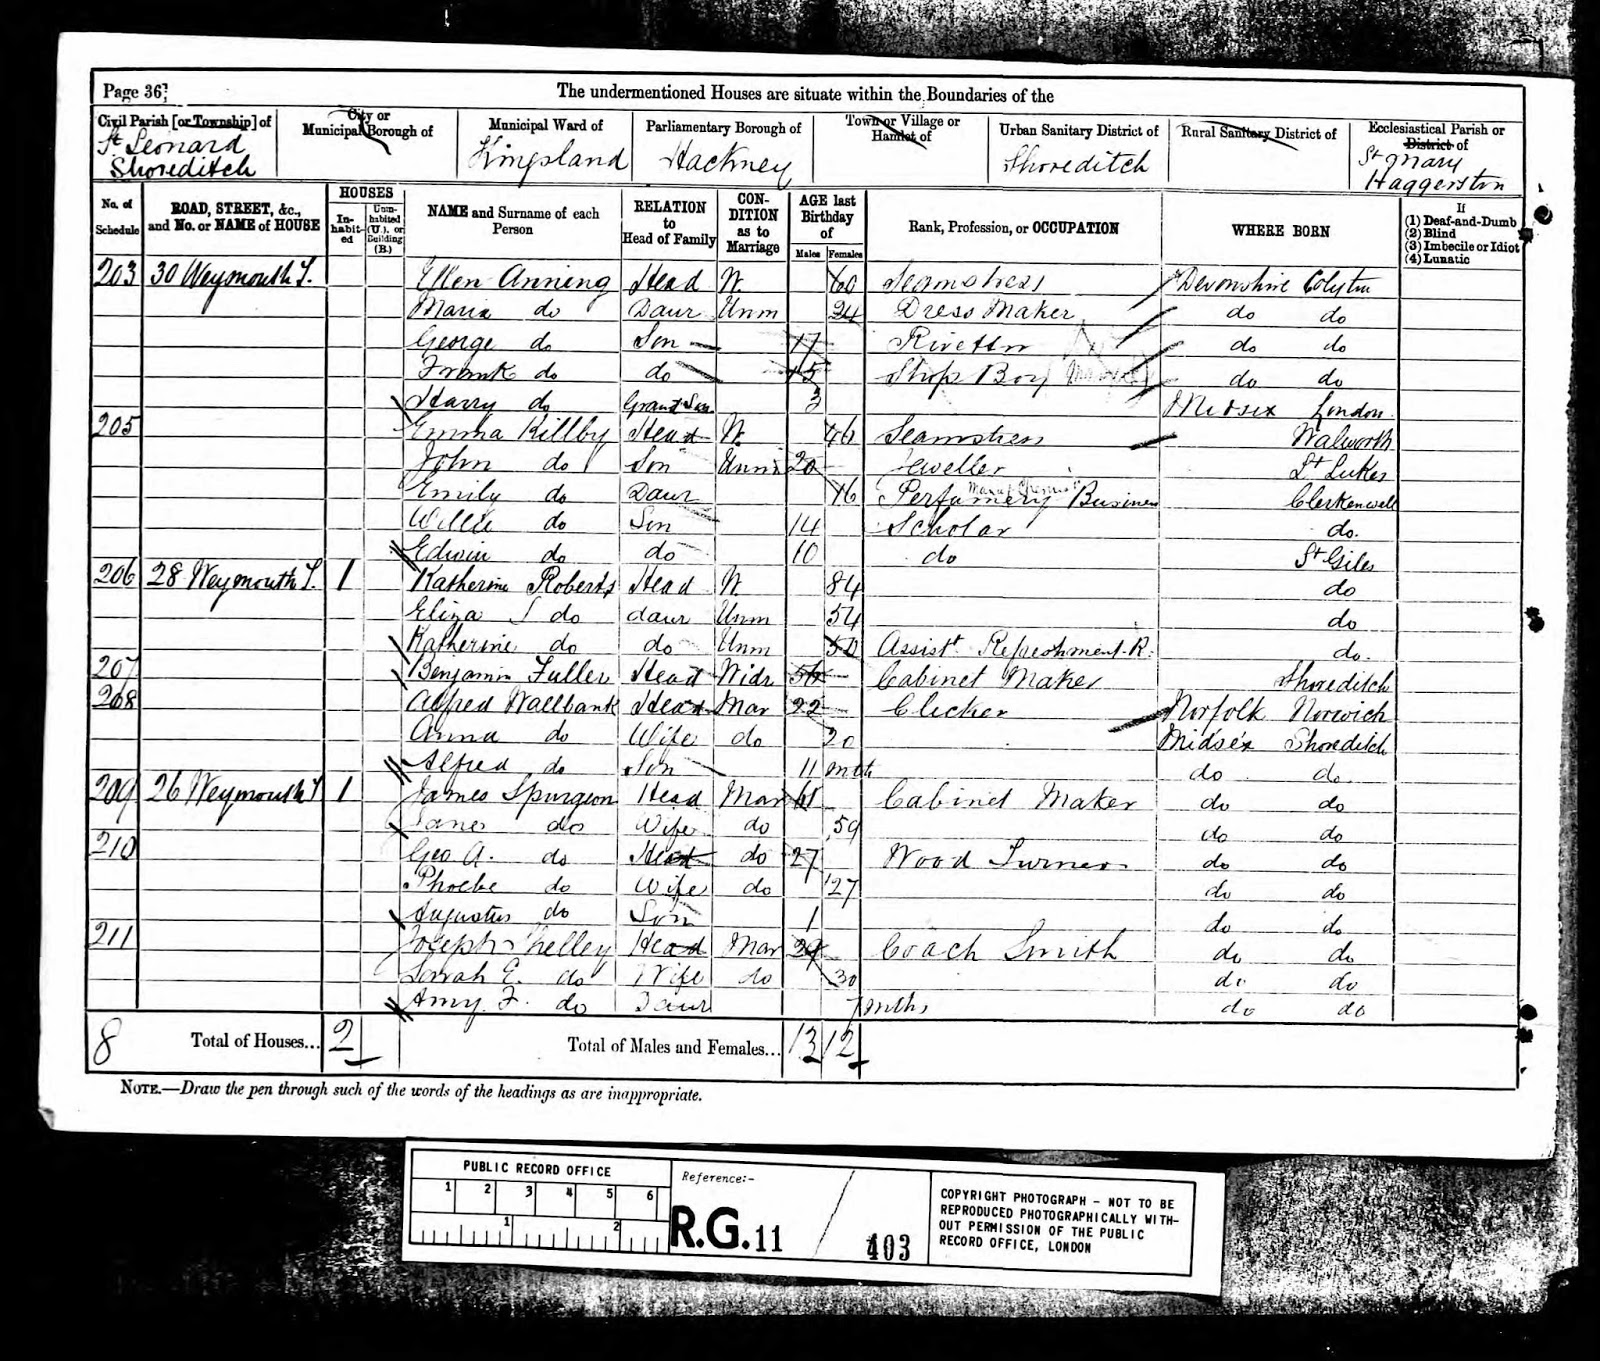 Page 36
The undermentioned Houses are situate within the Boundaries of the
Civil Parish [or Township] of
St Leonard
Shoreditch
City or
Municipal Borough of
Municipal Ward of
Kingsland
Parliamentary Borough of
Hackney
Town or Village or
Hamlet of
Urban Sanitary District of
Shoreditch
Rural Sanitary District of
Ecclesiastical Parish or
District of
St Mary
Haggerston
No. of Schedule
ROAD, STREET, &c., and No. or NAME of HOUSE
HOUSES
In-habit-ed
Unin-habited (U.), or Building (B.)
NAME and Surname of each Person
RELATION to Head of Family
CON-DITION as to Marriage
AGE last Birthday of
Males Females
Rank, Profession, or OCCUPATION
WHERE BORN
If
(1) Deaf-and-Dumb
(2) Blind
(3) Imbecile or Idiot
(4) Lunatic
203 30 Weymouth T. Ellen Anning Head W. 60 Seamstress Devonshire Colyton
Maria do Daur Unm 24 Dress Maker do do
George do Son 17 do do
Frank do do 15 Shop Boy do do
Harry do Grand Son 3 Midsex London
205 Emma Killby Head W. 46 Seamstress Walworth
John do Son Unm 20 Jeweller St Lukes
Emily do Daur 16 Perfumery Business Clerkenwell
Willie do Son 14 Scholar do.
Edwin do do 10 do St Giles
206 28 Weymouth T. 1 Katherine Roberts Head W. 84 do
Eliza S do daur Unm 54 do
Katherine do do Unm 50 Assist Refreshment R. do.
207 Benjamin Fuller Head Widr 56 Cabinet Maker Shoreditch
208 Alfred Wallbank Head Mar 22 Clicker Norfolk Norwich
Anna do Wife do 20 Midsex Shoreditch
Alfred do Son 11 mth do do
209 26 Weymouth T 1 James Spurgeon Head Mar 61 Cabinet Maker do do
Jane do Wife do 59 do do
210 Geo A. do Head do 27 Wood Turner do do
Phoebe do Wife do 27 do do
Augustus do Son 1 do do
211 Joseph Shelley Head Mar 29 Coach Smith do do
Sarah E. do Wife do 30 do do
Amy F. do Daur 7 mths do do
8 Total of Houses... 2 Total of Males and Females... 13 12
NOTE.—Draw the pen through such of the words of the headings as are inappropriate.
PUBLIC RECORD OFFICE
1 2 3 4 5 6
1 2
Reference:-
R.G. 11 / 403
COPYRIGHT PHOTOGRAPH - NOT TO BE
REPRODUCED PHOTOGRAPHICALLY WITH-
OUT PERMISSION OF THE PUBLIC
RECORD OFFICE, LONDON